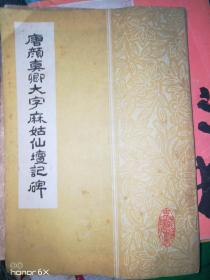 唐颜真卿大字麻姑仙壇記碑
honor 6X